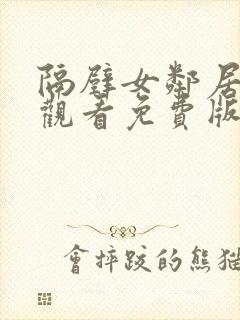 隔壁女鄰居
觀看免費版
會摔跤的熊猫